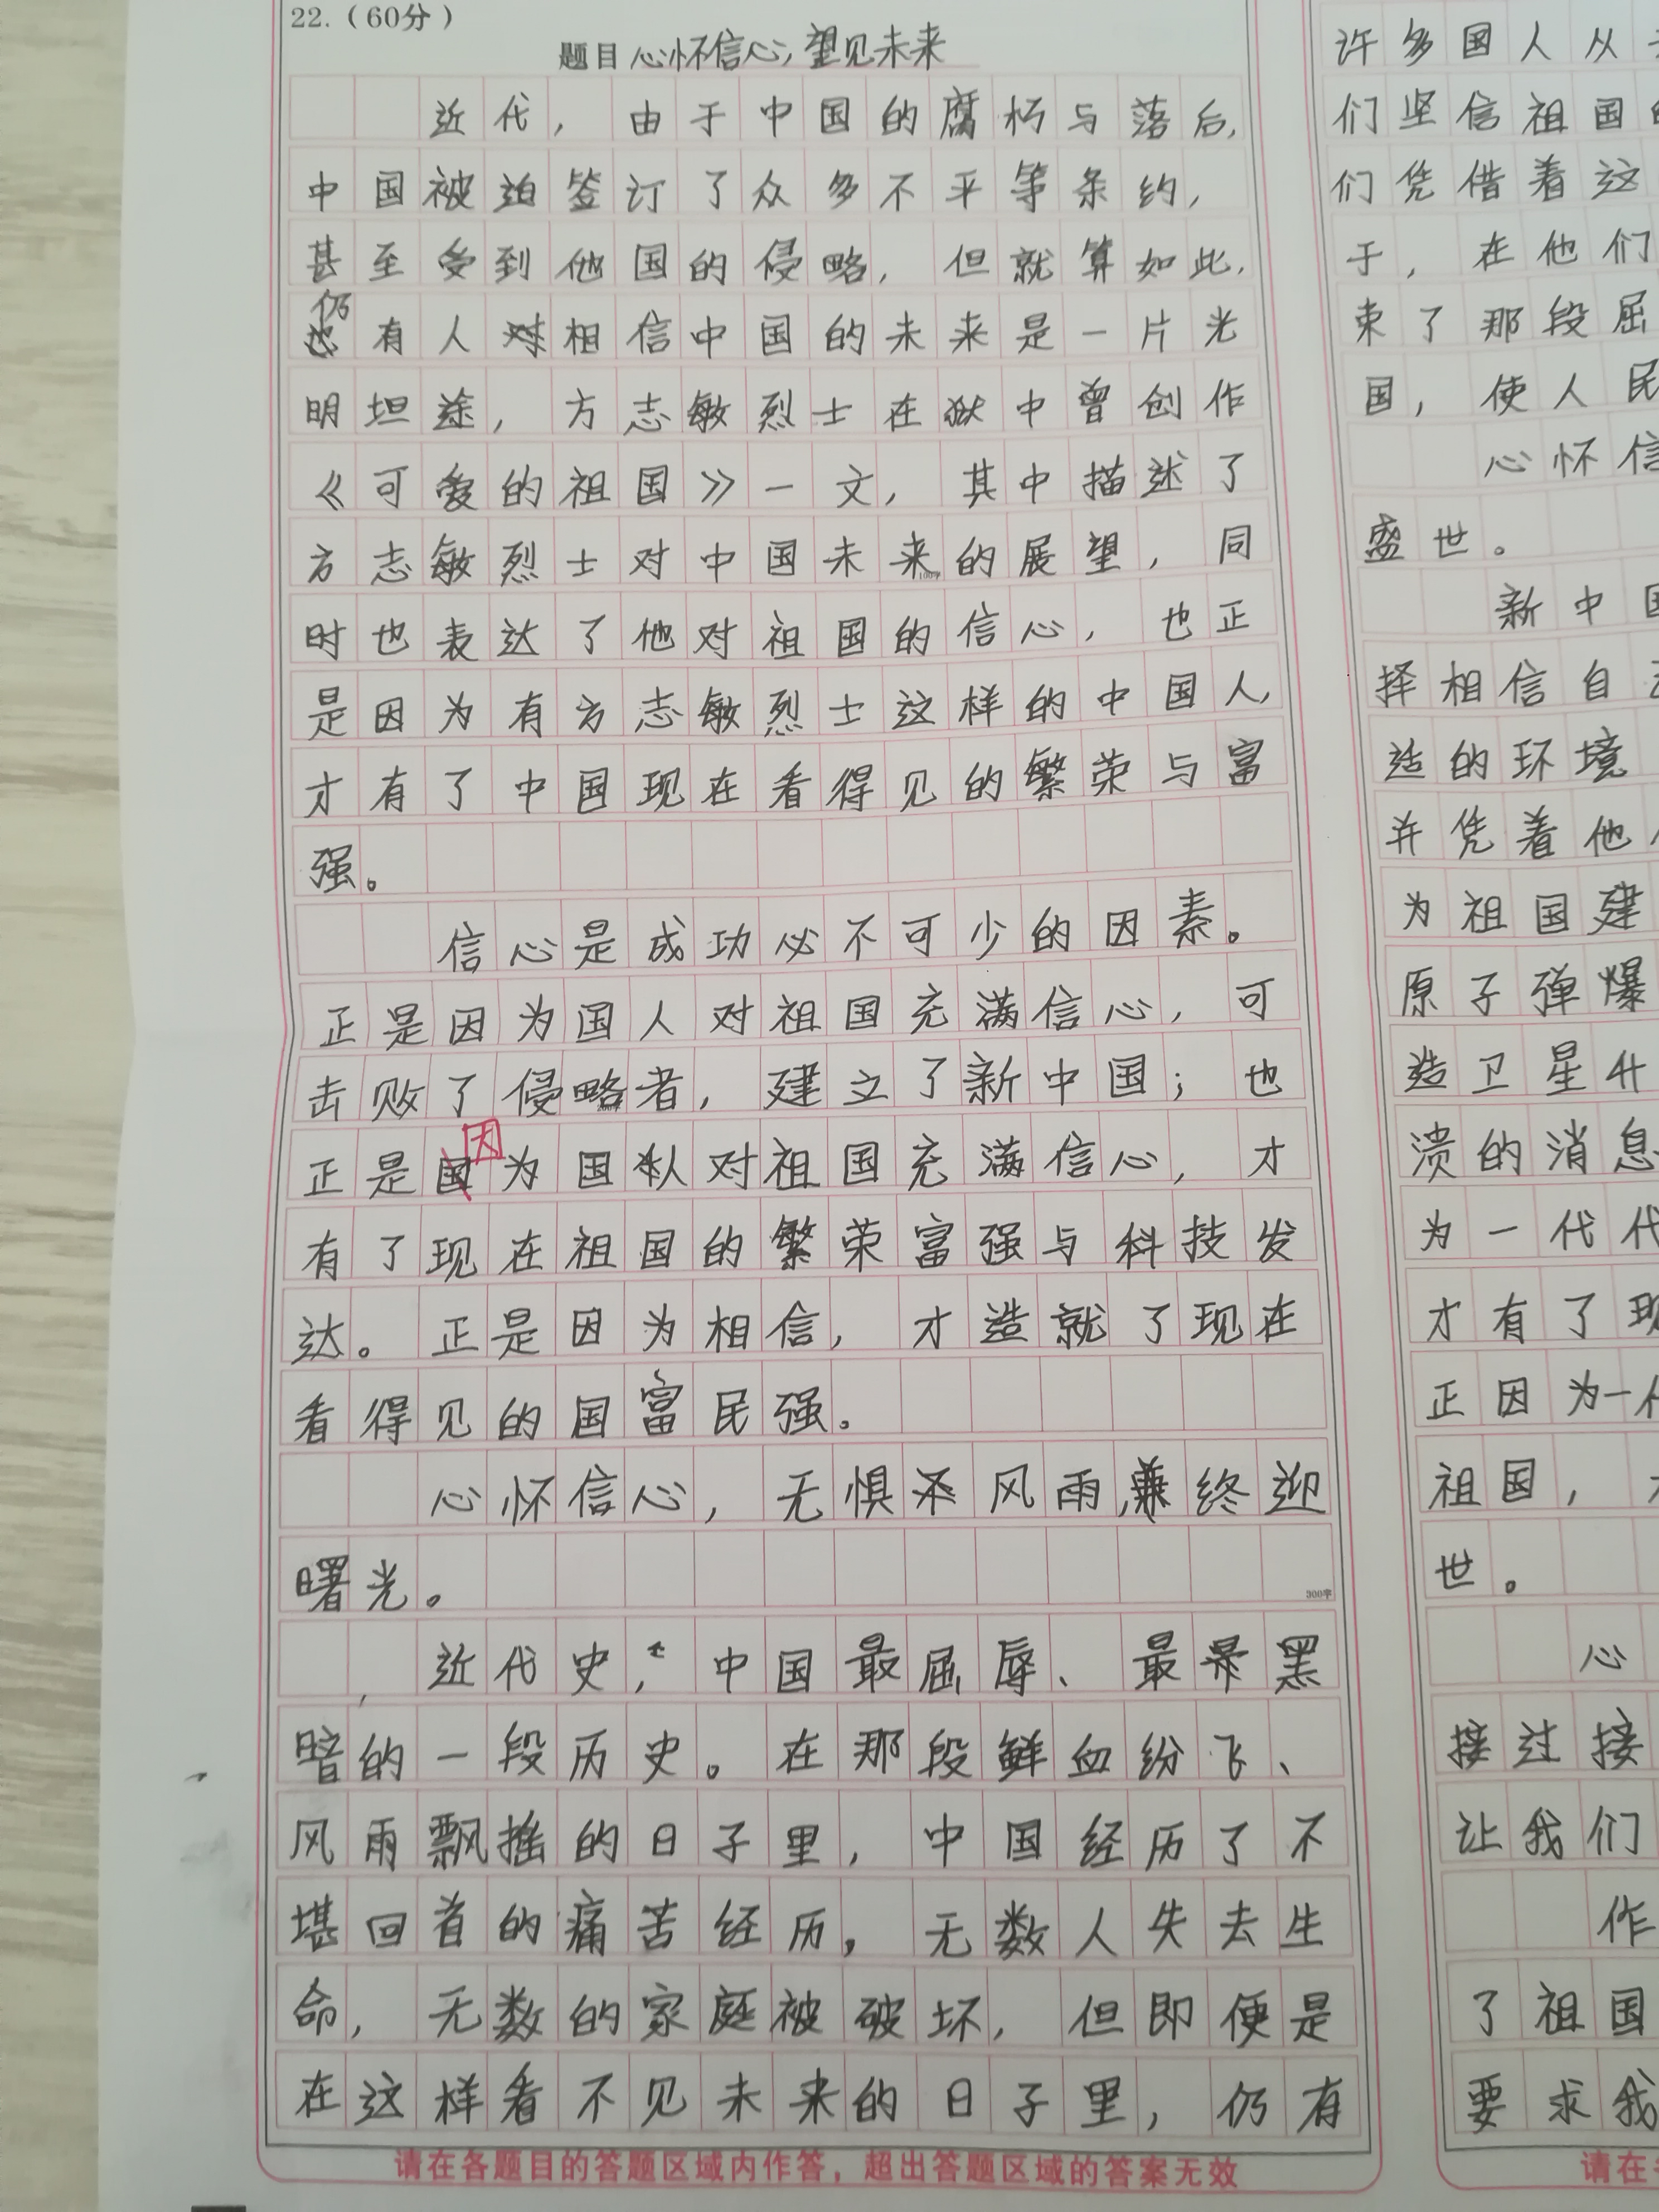 22.（60分）
题目 心怀信心，望见未来
近代，由于中国的腐朽与落后，
中国被迫签订了众多不平等条约，
甚至受到他国的侵略，但就算如此，
仍有人相信中国的未来是一片光
明坦途，方志敏烈士在狱中曾创作
《可爱的祖国》一文，其中描述了
方志敏烈士对中国未来的展望，同
100字
时也表达了他对祖国的信心，也正
是因为有方志敏烈士这样的中国人，
才有了中国现在看得见的繁荣与富
强。
信心是成功必不可少的因素。
正是因为国人对祖国充满信心，可
击败了侵略者，建立了新中国；也
200字
正是因为国人对祖国充满信心，才
有了现在祖国的繁荣富强与科技发
达。正是因为相信，才造就了现在
看得见的国富民强。
心怀信心，无惧风雨，终迎
曙光。
300字
近代史，中国最屈辱、最黑
暗的一段历史。在那段鲜血纷飞、
风雨飘摇的日子里，中国经历了不
堪回首的痛苦经历，无数人失去生
命，无数的家庭被破坏，但即便是
在这样看不见未来的日子里，仍有
请在各题目的答题区域内作答，超出答题区域的答案无效
许多国人从
们坚信祖国
们凭借着这
于，在他们
束了那段屈
国，使人民
心怀信
盛世。
新中国
择相信自
造的环境
并凭着他
为祖国建
原子弹爆
造卫星升
溃的消息
为一代代
才有了现
正因为一代
祖国，
世。
心
接过接
让我们
作
了祖国
要求我
请在